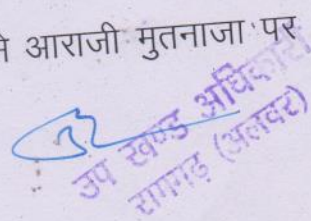 आराजी मुतनाजा पर
उप खण्ड अधिकारी
रामगढ़ (अलवर)